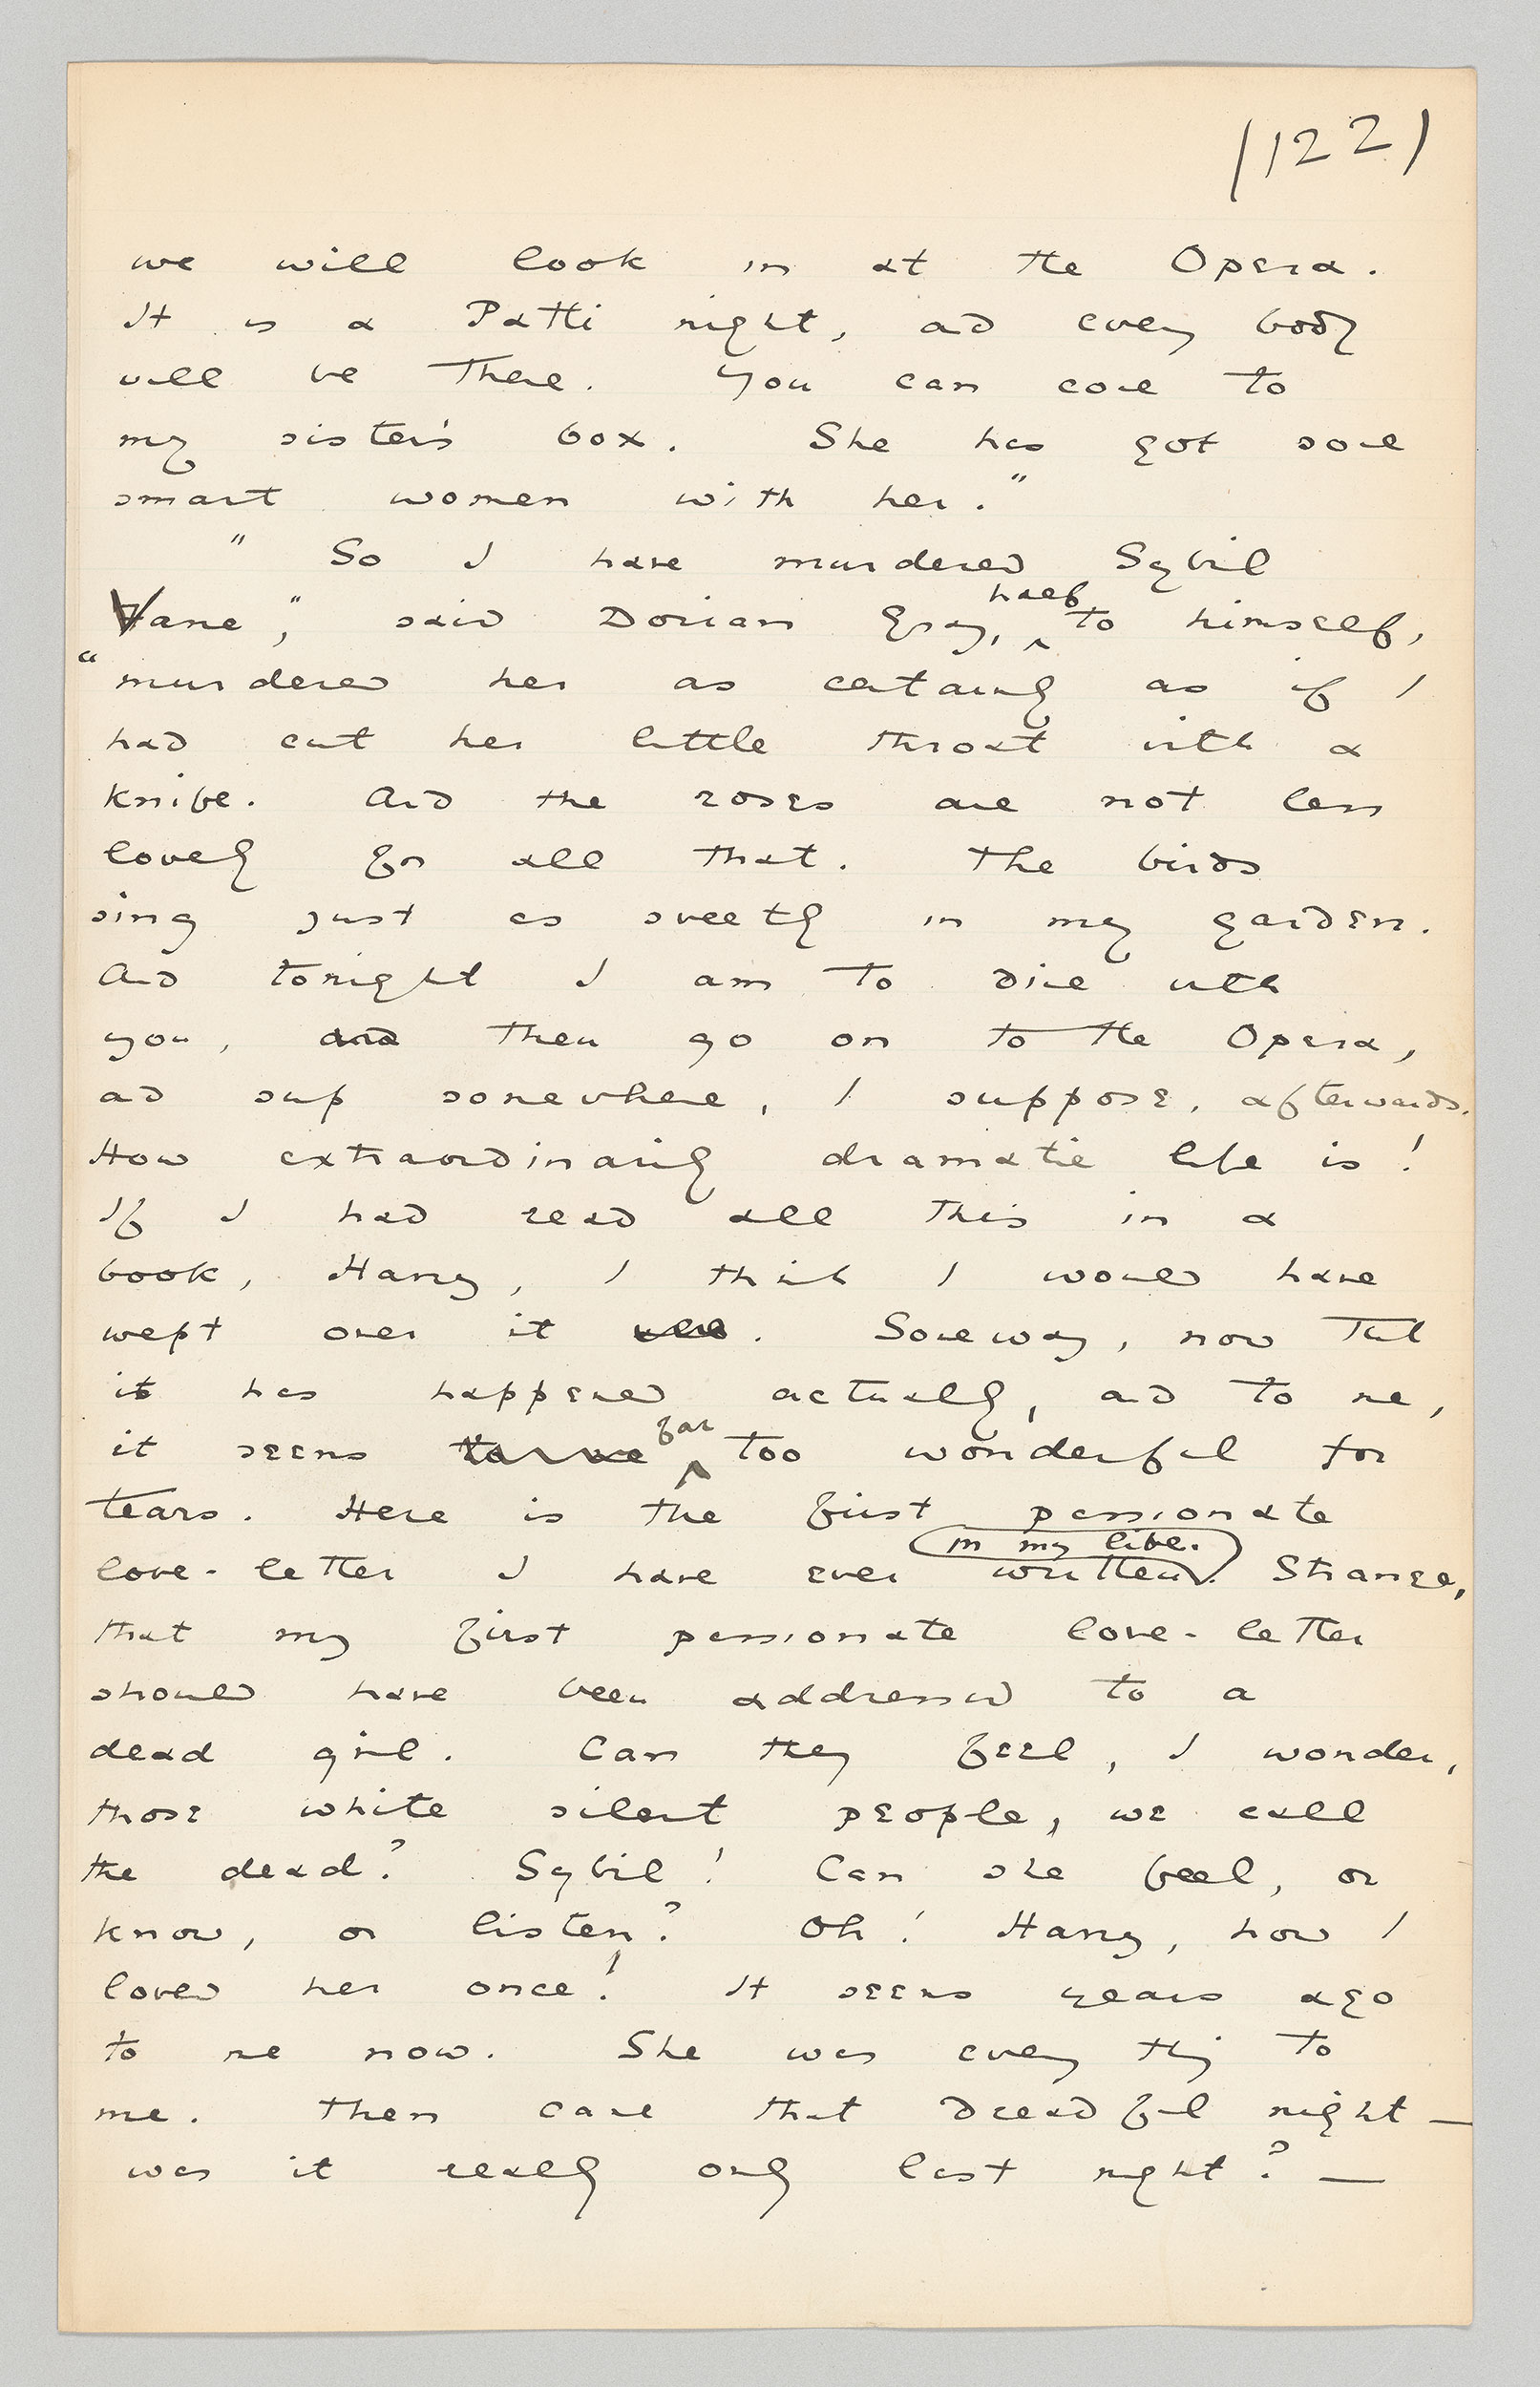 (122)
we will look in at the Opera.
It is a Patti night, and every body
will be there. You can come to
my sister's box. She has got some
smart women with her."
" So I have murdered Sybil
Vane," said Dorian Gray, half to himself,
"murdered her as certainly as if I
had cut her little throat with a
knife. And the roses are not less
lovely for all that. The birds
sing just as sweetly in my garden.
And tonight I am to dine with
you, and then go on to the Opera,
and sup somewhere, I suppose, afterwards.
How extraordinarily dramatic life is!
If I had read all this in a
book, Harry, I think I would have
wept over it. Someway, now that
it has happened actually, and to me,
it seems far too wonderful for
tears. Here is the first passionate
love-letter I have ever written in my life. Strange,
that my first passionate love-letter
should have been addressed to a
dead girl. Can they feel, I wonder,
those white silent people, we call
the dead? Sybil! Can she feel, or
know, or listen? Oh! Harry, how I
loved her once! It seems years ago
to me now. She was every thing to
me. Then came that dreadful night —
was it really only last night? —